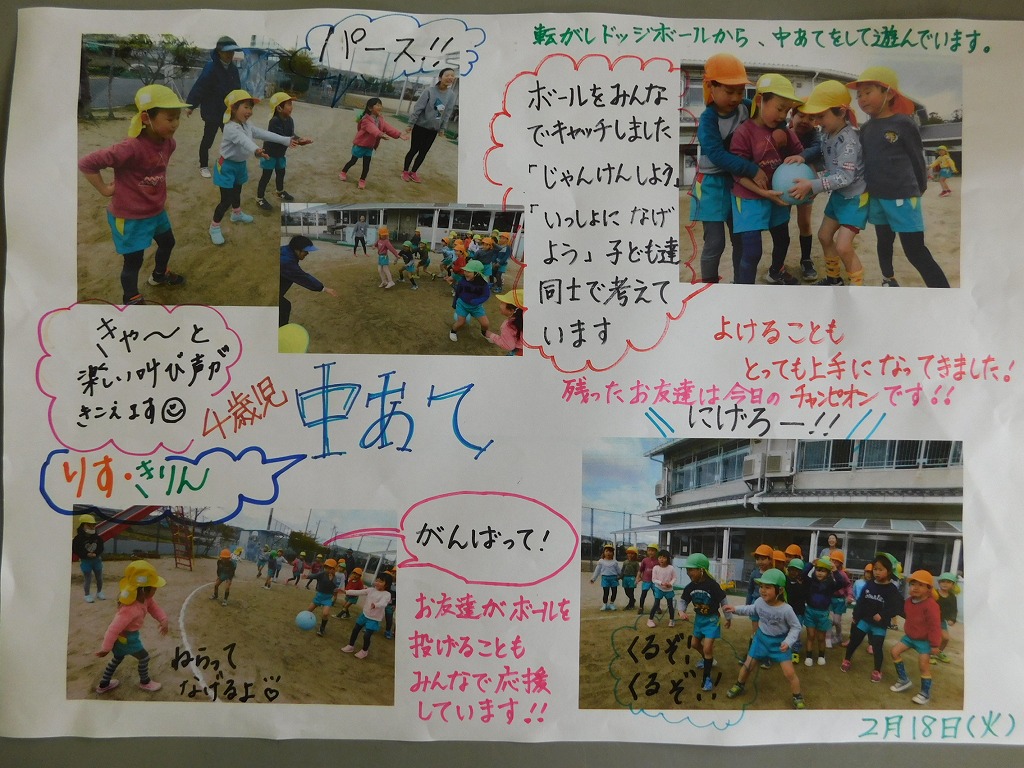 パース!!
転がしドッジボールから、中あてをして遊んでいます。
ボールをみんな
でキャッチしました
「じゃんけんしよう」
「いっしょに なげ
よう」子ども達
同士で考えて
います
きゃ〜と
楽しい叫び声が
きこえます☺
4歳児
中あて
りす・きりん
よけることも
とっても上手になってきました!
残ったお友達は今日の チャンピオン です!!
にげろー!!
がんばって!
お友達がボールを
投げることも
みんなで応援
しています!!
ねらって
なげるよ♡
くるぞ!
くるぞ!!
2月18日(火)